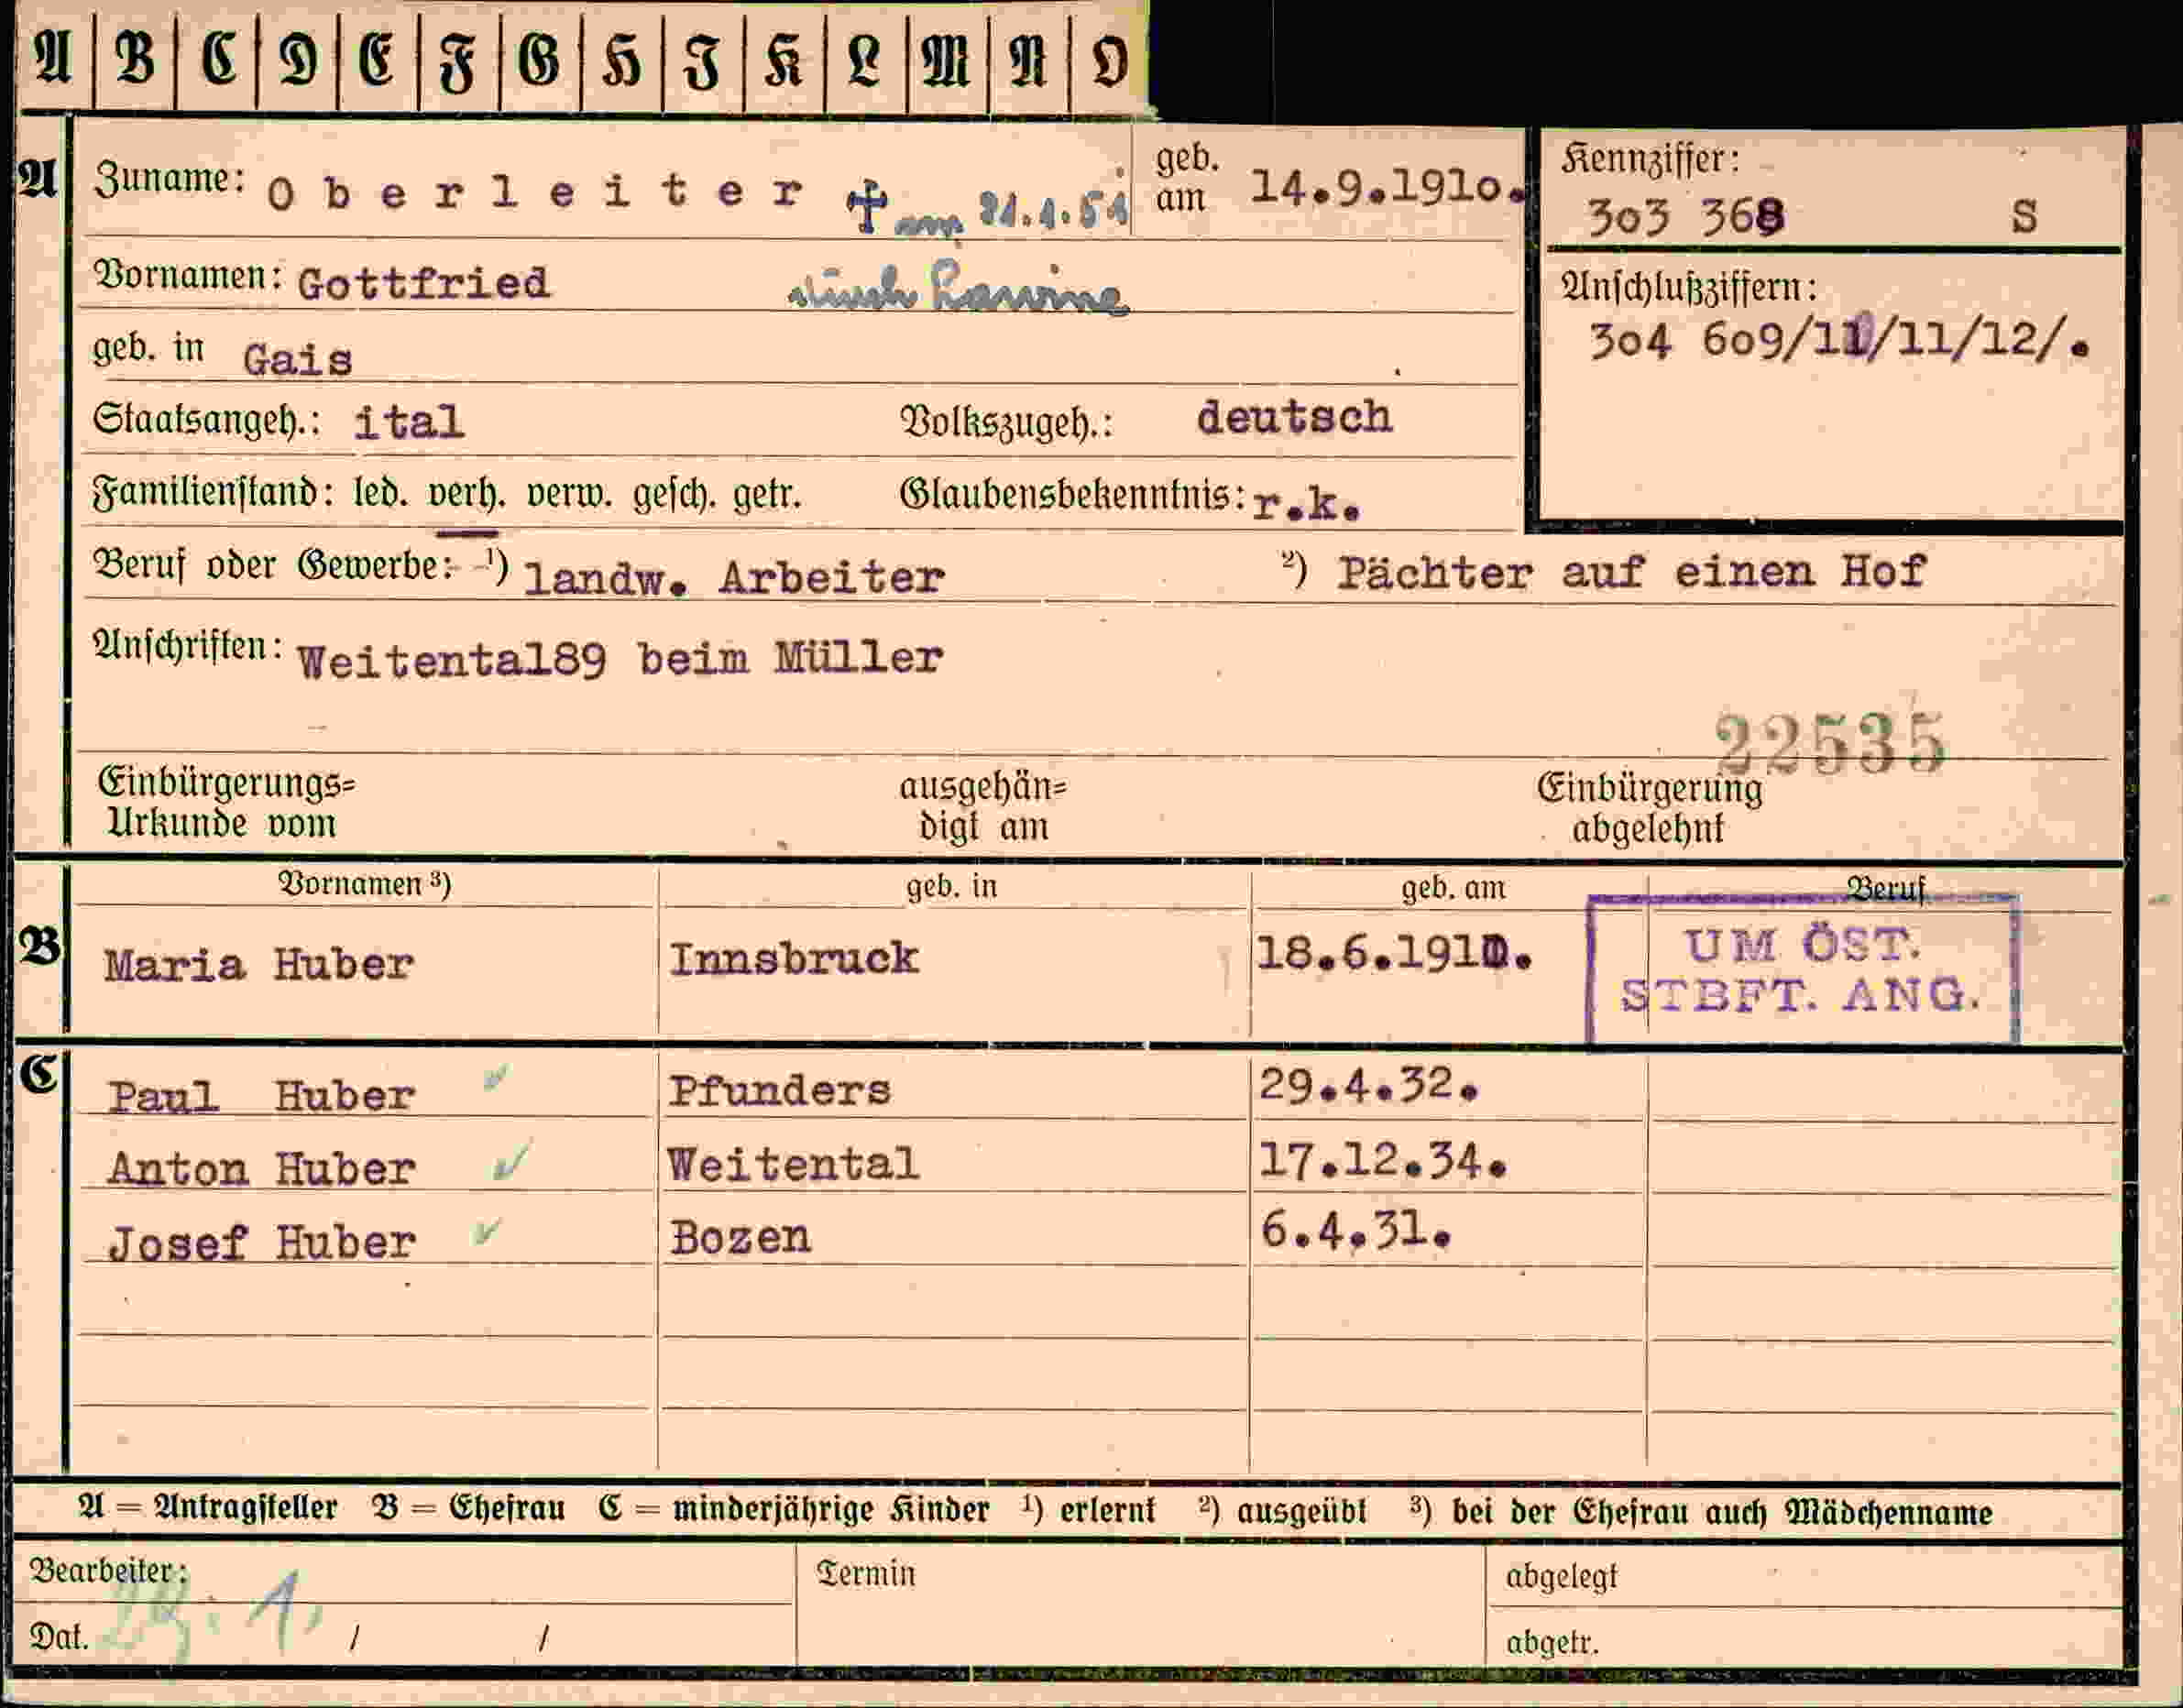 A B C D E F G H I K L M N O
A Zuname: Oberleiter ✝ am 21.1.51 geb. am 14.9.1910.
Kennziffer:
303 368 S
Vornamen: Gottfried durch Lawine
Anschlußziffern:
304 609/11/11/12/.
geb. in Gais
Staatsangeh.: ital Volkszugeh.: deutsch
Familienstand: led. verh. verw. gesch. getr. Glaubensbekenntnis: r.k.
Beruf oder Gewerbe: ¹) landw. Arbeiter ²) Pächter auf einen Hof
Anschriften: Weitental89 beim Müller
22535
Einbürgerungs= ausgehän= Einbürgerung
Urkunde vom digt am abgelehnt
Vornamen ³) geb. in geb. am Beruf
B Maria Huber Innsbruck 18.6.1910.
UM ÖST.
STBFT. ANG.
C Paul Huber ✓ Pfunders 29.4.32.
Anton Huber ✓ Weitental 17.12.34.
Josef Huber ✓ Bozen 6.4.31.
A = Antragsteller B = Ehefrau C = minderjährige Kinder ¹) erlernt ²) ausgeübt ³) bei der Ehefrau auch Mädchenname
Bearbeiter: Termin abgelegt
Dat. / / abgetr.